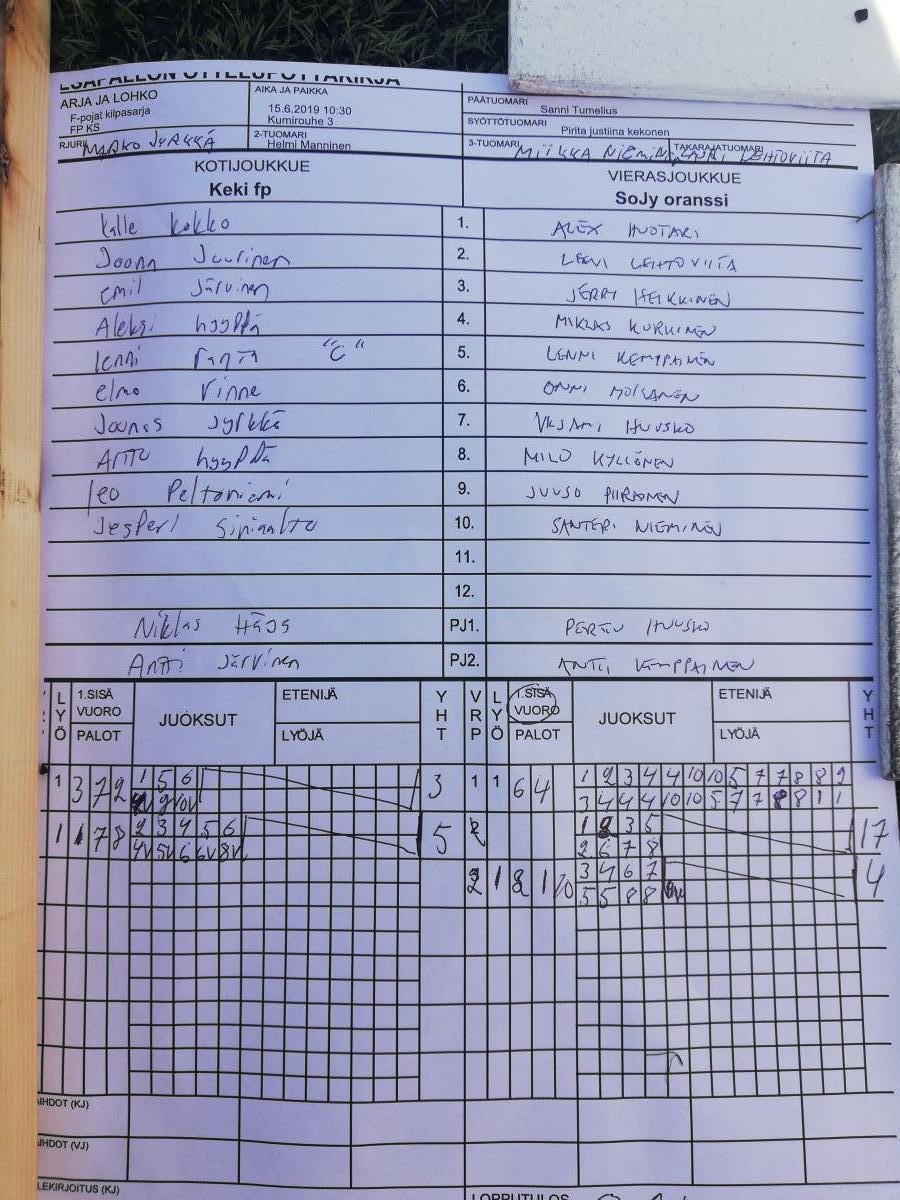 ESÄPALLON OTTELUPÖYTÄKIRJA
SARJA JA LOHKO
F-pojat kilpasarja
FP KS
AIKA JA PAIKKA
15.6.2019 10:30
Kumirouhe 3
PÄÄTUOMARI
Sanni Tumelius
SYÖTTÖTUOMARI
Pirita justiina kekonen
RJURI MARKO JYRKKÄ
2-TUOMARI
Helmi Manninen
3-TUOMARI MIIKKA NIEMIN
TAKARAJATUOMARI LEHTOVIITA
KOTIJOUKKUE
Keki fp
VIERASJOUKKUE
SoJy oranssi
Kalle Kokko 1. ALEX HUOTARI
Joona Juurinen 2. LEEVI LEHTOVIITA
Emil Järvinen 3. JERRY HEIKKINEN
Aleksi hyyppä 4. MIKLAS KURKINEN
lenni ranta "C" 5. LENNI KEMPPAINEN
elmo rinne 6. ONNI MOILANEN
Joonas Jyrkkä 7. HUUSKO
Arttu hyyppä 8. MILO KYLLÖNEN
leo Peltoniemi 9. JUUSO PIIRAINEN
Jesperi Sipiaalto 10. SANTERI NIEMINEN
11.
12.
Niklas Häos PJ1. PERTTU HUUSKO
Antti Järvinen PJ2. ANTTI KEMPPAINEN
LYÖ 1.SISÄ VUORO PALOT JUOKSUT ETENIJÄ LYÖJÄ YHT VRP LYÖ 1.SISÄ VUORO PALOT JUOKSUT ETENIJÄ LYÖJÄ YHT
1 3 7 2 1 5 6 3 1 1 6 4 1 2 3 4 4 10 10 5 7 7 8 8 9
9 10V 3 4 4 4 10 10 5 7 7 8 8 1 1
1 1 7 8 2 3 4 5 6 5 2 1 2 3 5 17
4V 5V 6 6V 8V 2 6 7 8
2 1 2 1 10 3 4 6 7 4
5 5 8 8
AIHDOT (KJ)
AIHDOT (VJ)
LEKIRJOITUS (KJ)
LOPPUTULOS